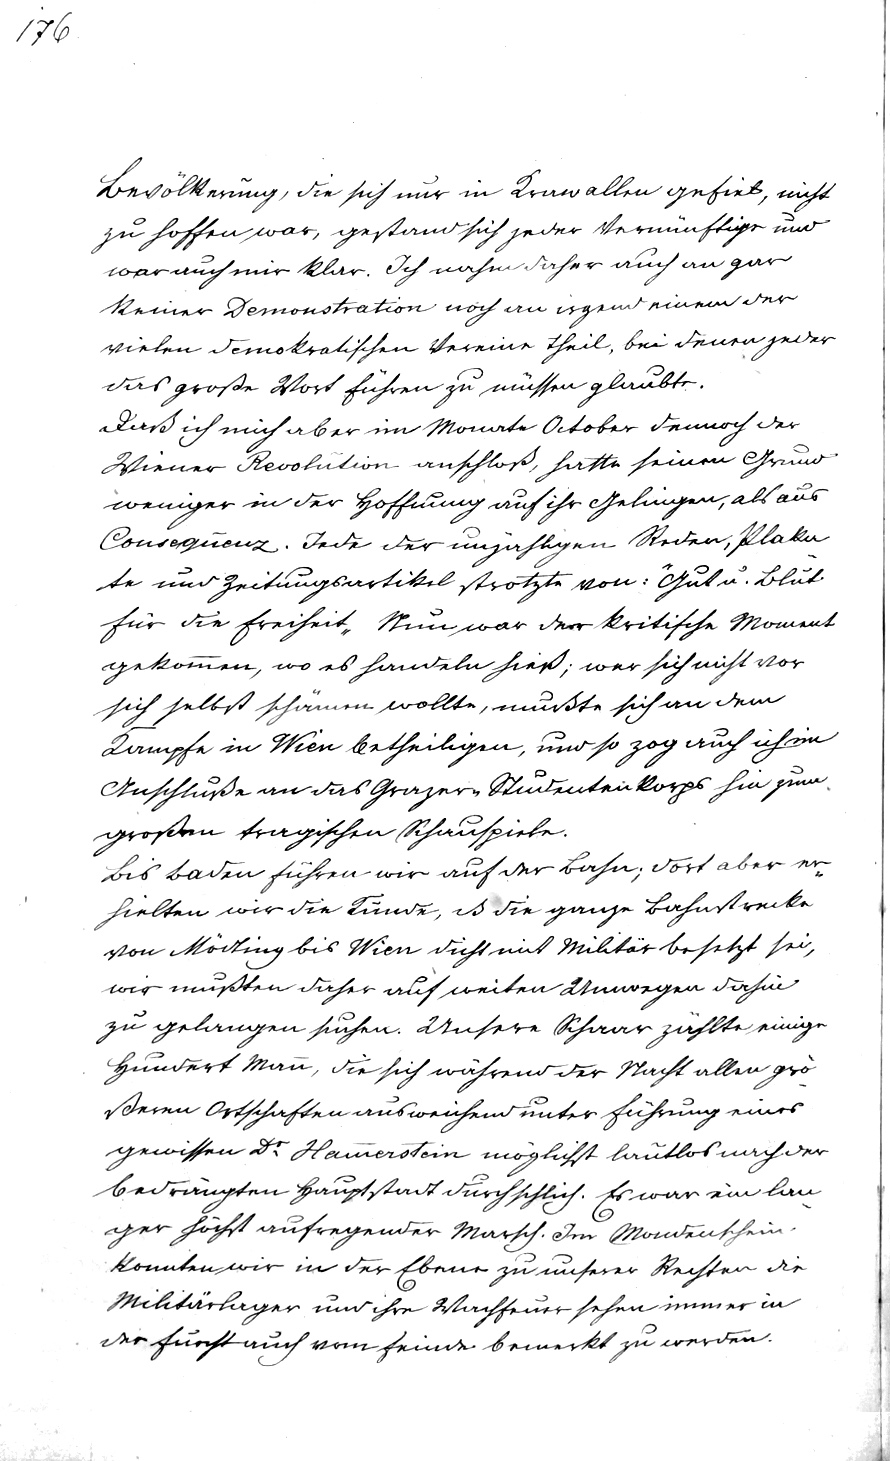 176
Bevölkerung, die sich nur in Krawallen gefiel, nicht
zu hoffen war, gestand sich jeder Vernünftige und
war auch mir klar. Ich nahm daher auch an gar
keiner Demonstration noch an irgend einem der
vielen demokratischen Vereine theil, bei denen jeder
das große Wort führen zu müssen glaubte.
Daß ich mich aber im Monate October dennoch der
Wiener Revolution anschloß, hatte seinen Grund
weniger in der Hoffnung auf ihr Gelingen, als aus
Consequenz. Jede der unzähligen Reden, Plaka
te und Zeitungsartikel strotzte von: "Gut u. Blut
für die Freiheit„ Nun war der kritische Moment
gekom̅en, wo es handeln hieß; wer sich nicht vor
sich selbst schämen wollte, mußte sich an dem
Kampfe in Wien betheiligen, und so zog auch ich im
Anschluße an das Grazer- Studentenkorps hin zum
großen tragischen Schauspiele.
Bis Baden fuhren wir auf der Bahn; dort aber er=
hielten wir die Kunde, dß die ganze Bahnstrecke
von Mödling bis Wien dicht mit Militär besetzt sei,
wir mußten daher auf weiten Umwegen dahin
zu gelangen suchen. Unsere Schaar zählte einige
Hundert Man̅, die sich während der Nacht allen grö
ßeren Ortschaften ausweichend unter Führung eines
gewissen Dr. Ham̅erstein möglichst lautlos nach der
bedrängten Hauptstadt durchschlich. Es war ein lan
ger höchst aufregender Marsch. Im Mondenschein
konnten wir in der Ebene zu unserer Rechten die
Militärlager und ihre Wachfeuer sehen immer in
der Furcht auch vom Feinde bemerkt zu werden.